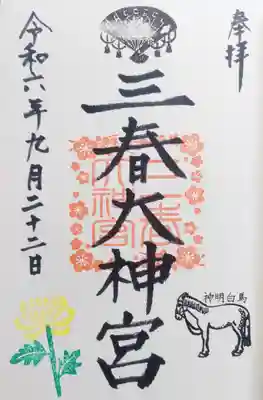 奉拝
三春大神宮
三春
大神宮
馬白明神
令和六年九月二十二日